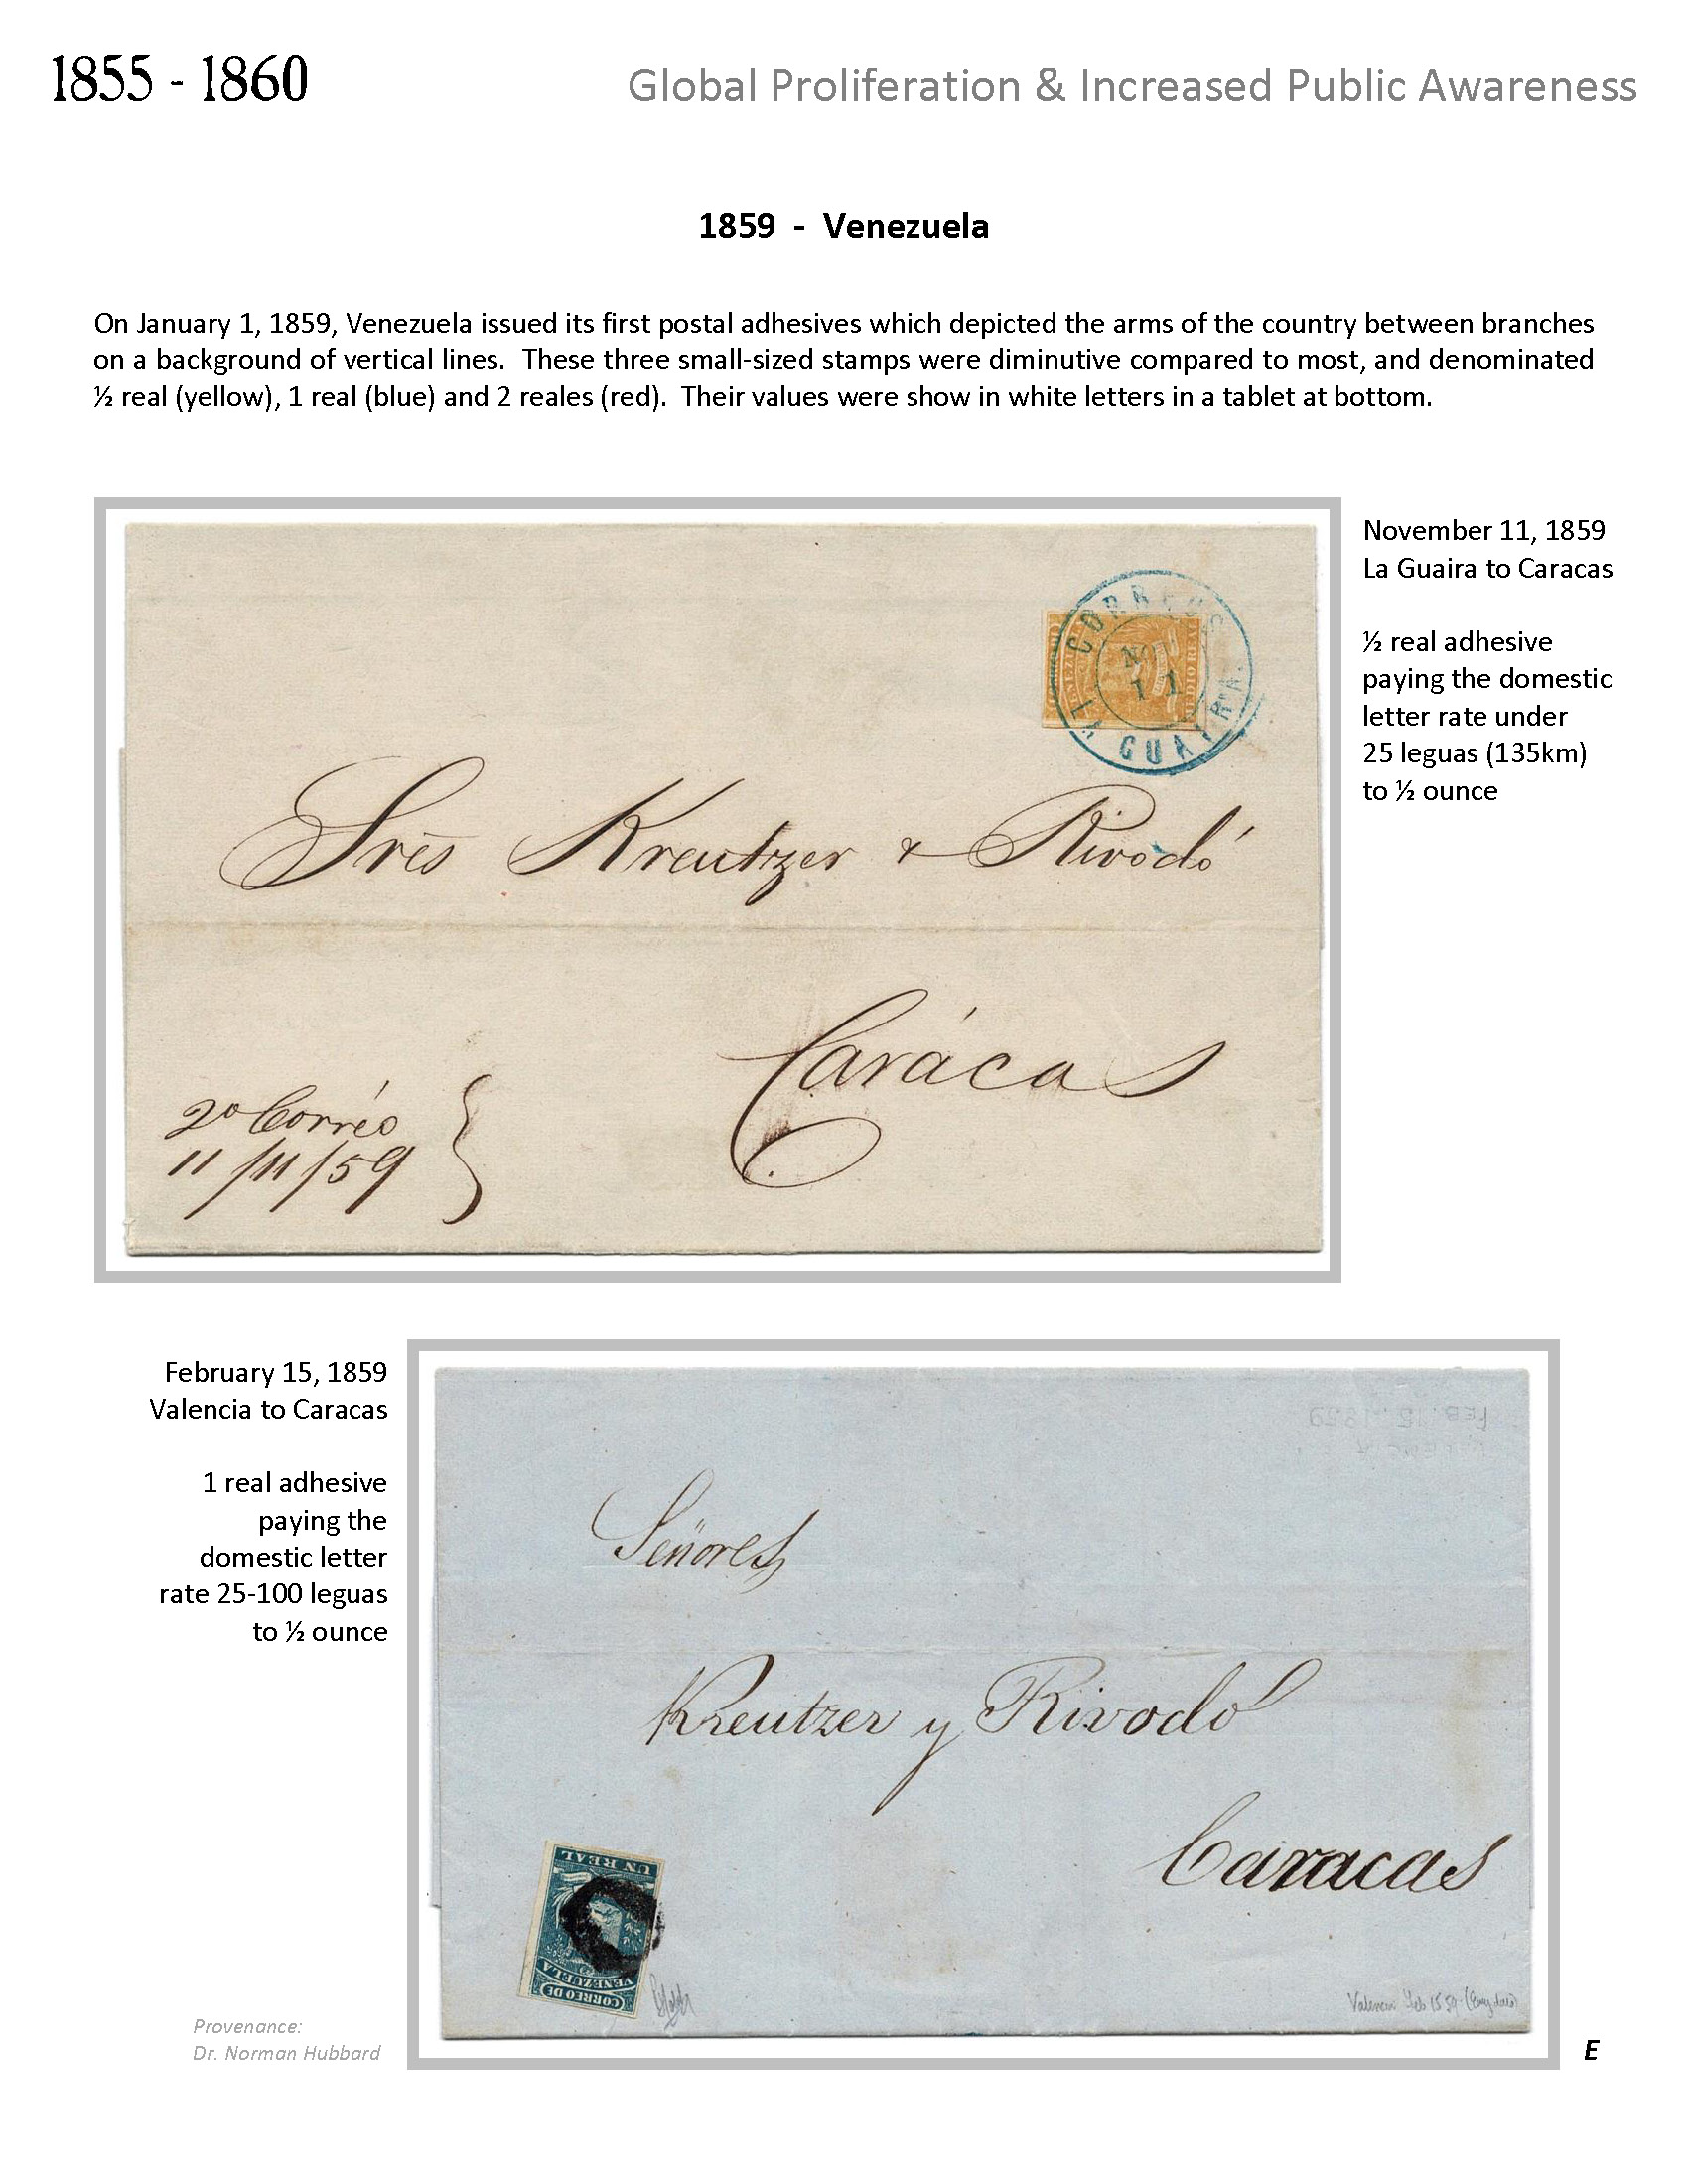 1855 - 1860
Global Proliferation & Increased Public Awareness
1859 - Venezuela
On January 1, 1859, Venezuela issued its first postal adhesives which depicted the arms of the country between branches
on a background of vertical lines. These three small-sized stamps were diminutive compared to most, and denominated
½ real (yellow), 1 real (blue) and 2 reales (red). Their values were show in white letters in a tablet at bottom.
November 11, 1859
La Guaira to Caracas
½ real adhesive
paying the domestic
letter rate under
25 leguas (135km)
to ½ ounce
CORREO
NOV
11
GUAIRA
Sres Kreutzer & Rivodó
Carácas
2º Corréo
11/11/59
February 15, 1859
Valencia to Caracas
1 real adhesive
paying the
domestic letter
rate 25-100 leguas
to ½ ounce
Señores
Kreutzer y Rivodó
Caracas
UN REAL
VENEZUELA
CORREO DE
Valencia Feb 15 59 (Early date)
Provenance:
Dr. Norman Hubbard
E